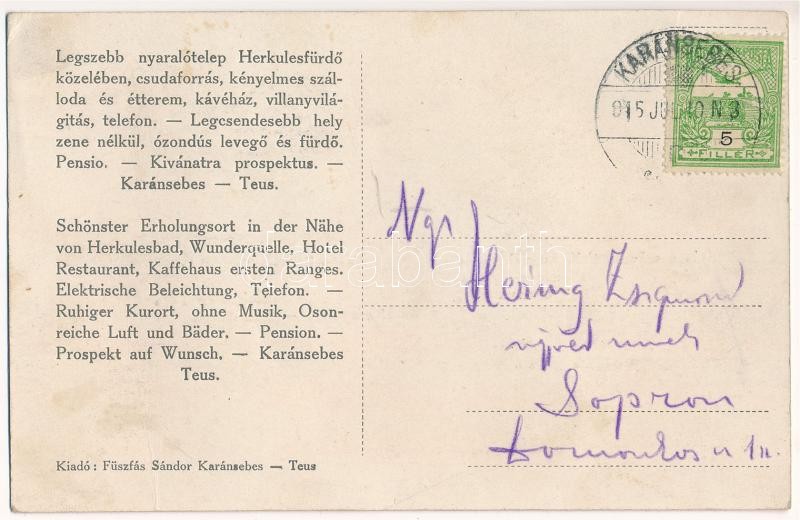 Legszebb nyaralótelep Herkulesfürdő
közelében, csudaforrás, kényelmes szál-
loda és étterem, kávéház, villanyvilá-
gitás, telefon. — Legcsendesebb hely
zene nélkül, ózondús levegő és fürdő.
Pensio. — Kivánatra prospektus. —
Karánsebes — Teus.
Schönster Erholungsort in der Nähe
von Herkulesbad, Wunderquelle, Hotel
Restaurant, Kaffehaus ersten Ranges.
Elektrische Beleichtung, Telefon. —
Ruhiger Kurort, ohne Musik, Oson-
reiche Luft und Bäder. — Pension. —
Prospekt auf Wunsch. — Karánsebes
Teus.
Kiadó: Füszfás Sándor Karánsebes — Teus
KARÁNSEBES
915 JUL 10 N 3
5
FILLÉR
Ngs
Zsigmond
Sopron
darabanth.com